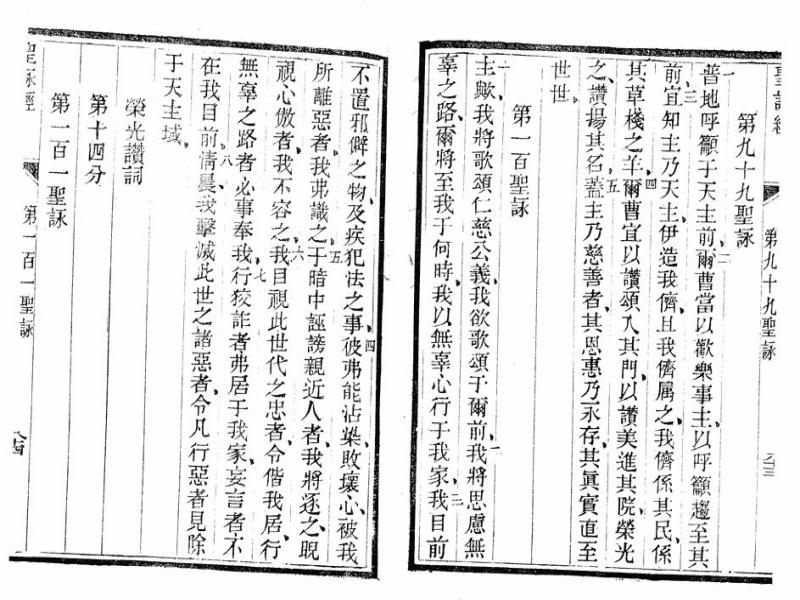 聖詠經
第九十九聖詠
第九十九聖詠
一普地呼籲于天主前、爾曹當以歡樂事主、二以呼籲趨至其
前、三宜知主乃天主、伊造我儕、且我儕屬之、我儕係其民、係
其草棧之羊、四爾曹宜以讚頌入其門、以讚美進其院、榮光
之、讚揚其名、五蓋主乃慈善者、其恩惠乃永存、其眞實直至
世世、
第一百聖詠
一主歟、我將歌頌仁慈公義、我欲歌頌于爾前、二我將思慮無
辜之路、爾將至我于何時、我以無辜心行于我家、三我目前
不置邪僻之物、及疾犯法之事、彼弗能沾染、四敗壞心、被我
所離、惡者、我弗識之、五于暗中誣謗親近人者、我將逐之、睨
視心傲者、我不容之、六我目視此世代之忠者、令偕我居、行
無辜之路者、必事奉我、七行狡詐者、弗居于我家、妄言者、不
在我目前、八清晨、我擊滅此世之諸惡者、令凡行惡者、見除
于天主域、
榮光讚詞
第十四分
第一百一聖詠
聖詠經
第一百一聖詠